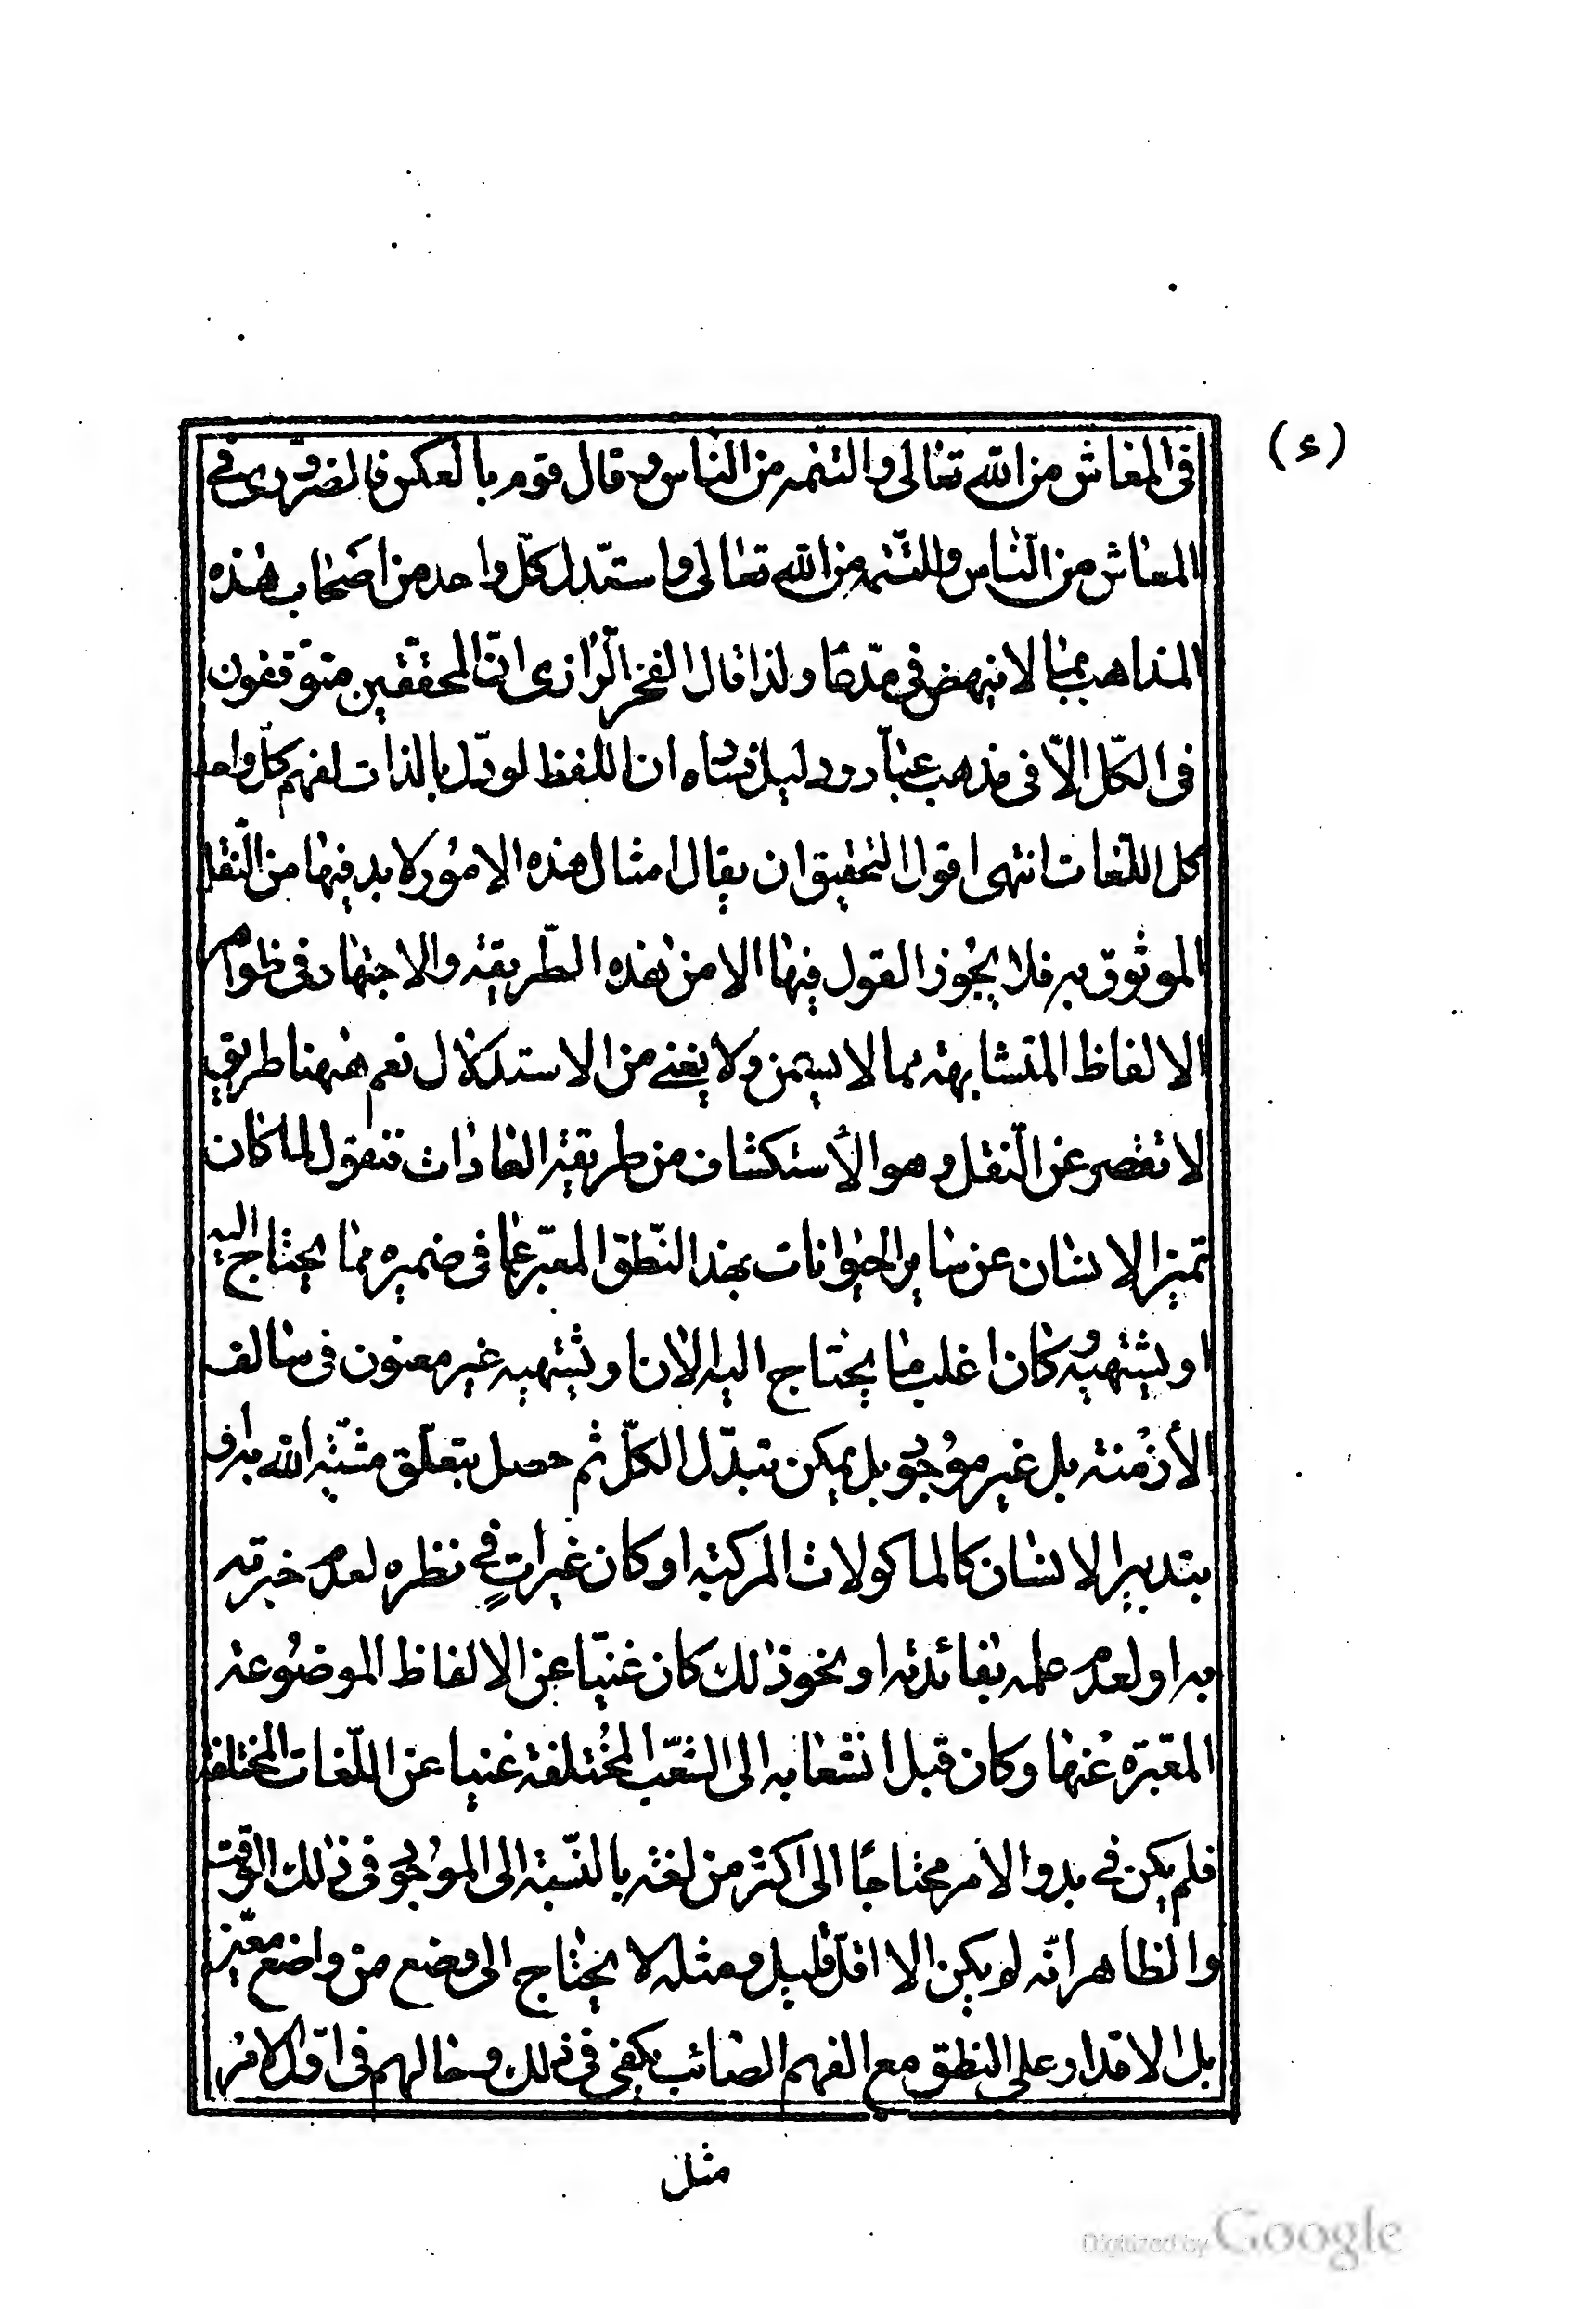 (٤)
فى المعاش من الله تعالى والتتمه من الناس وقال قوم بالعكس فالضرورى فى
المعاش من النّاس والتتمه من الله تعالى واستدل كلّ واحد من اصحاب هذه
المذاهب بما لا ينهض فى مدعا ولذا قال الفخر الرّازى انّ المحققين متوقفون
فى الكلّ الاّ فى مذهب عبّاد ودليل فساده ان اللفظ لو دلّ بالذات لفهم كلّ واحد
كل اللّغات انتهى اقول التحقيق ان يقال امثال هذه الامور لا بد فيها من النّقل
الموثوق به فلا يجوز القول فيها الا من هذه الطّريقة والاجتهاد فى ظواهر
الالفاظ المتشابهة مما لا يسمن ولا يغنى من الاستدلال نعم ههنا طريق
لا تقصر عن النّقل وهو الأستكشاف من طريقة العادات فنقول لما كان
تميز الانسان عن ساير الحيوانات بهذا النّطق المعبّر عما فى ضميره مما يحتاج اليه
او يشتهيه وكان اغلب ما يحتاج اليه الان او يشتهيه غير معنون فى سالف
الأزمنة بل غير موجود بل يمكن تبدّل الكلّ ثم حصل بتعلّق مشيّة الله به او
بتدبير الانسان كالماكولات المركبة او كان غير ات فى نظره لعدم خبرته
به او لعدم علمه بفائدته او نحو ذلك كان غنيّا عن الالفاظ الموضوعة
المعبّرة عنها وكان قبل انشعابه الى الشّعب المختلفة غنيا عن اللّغات المختلفة
فلم يكن فى بدو الامر محتاجًا الى اكثر من لغة بالنّسبة الى الموجود فى ذلك الوقت
والظاهر انّه لم يكن الا اقلّ قليل ومثله لا يحتاج الى وضع من واضع معيّن
بل الاقدار على النطق مع الفهم الصّائب يكفى فى ذلك وحالهم فى اوّل الامر
مثل
Digitized by Google